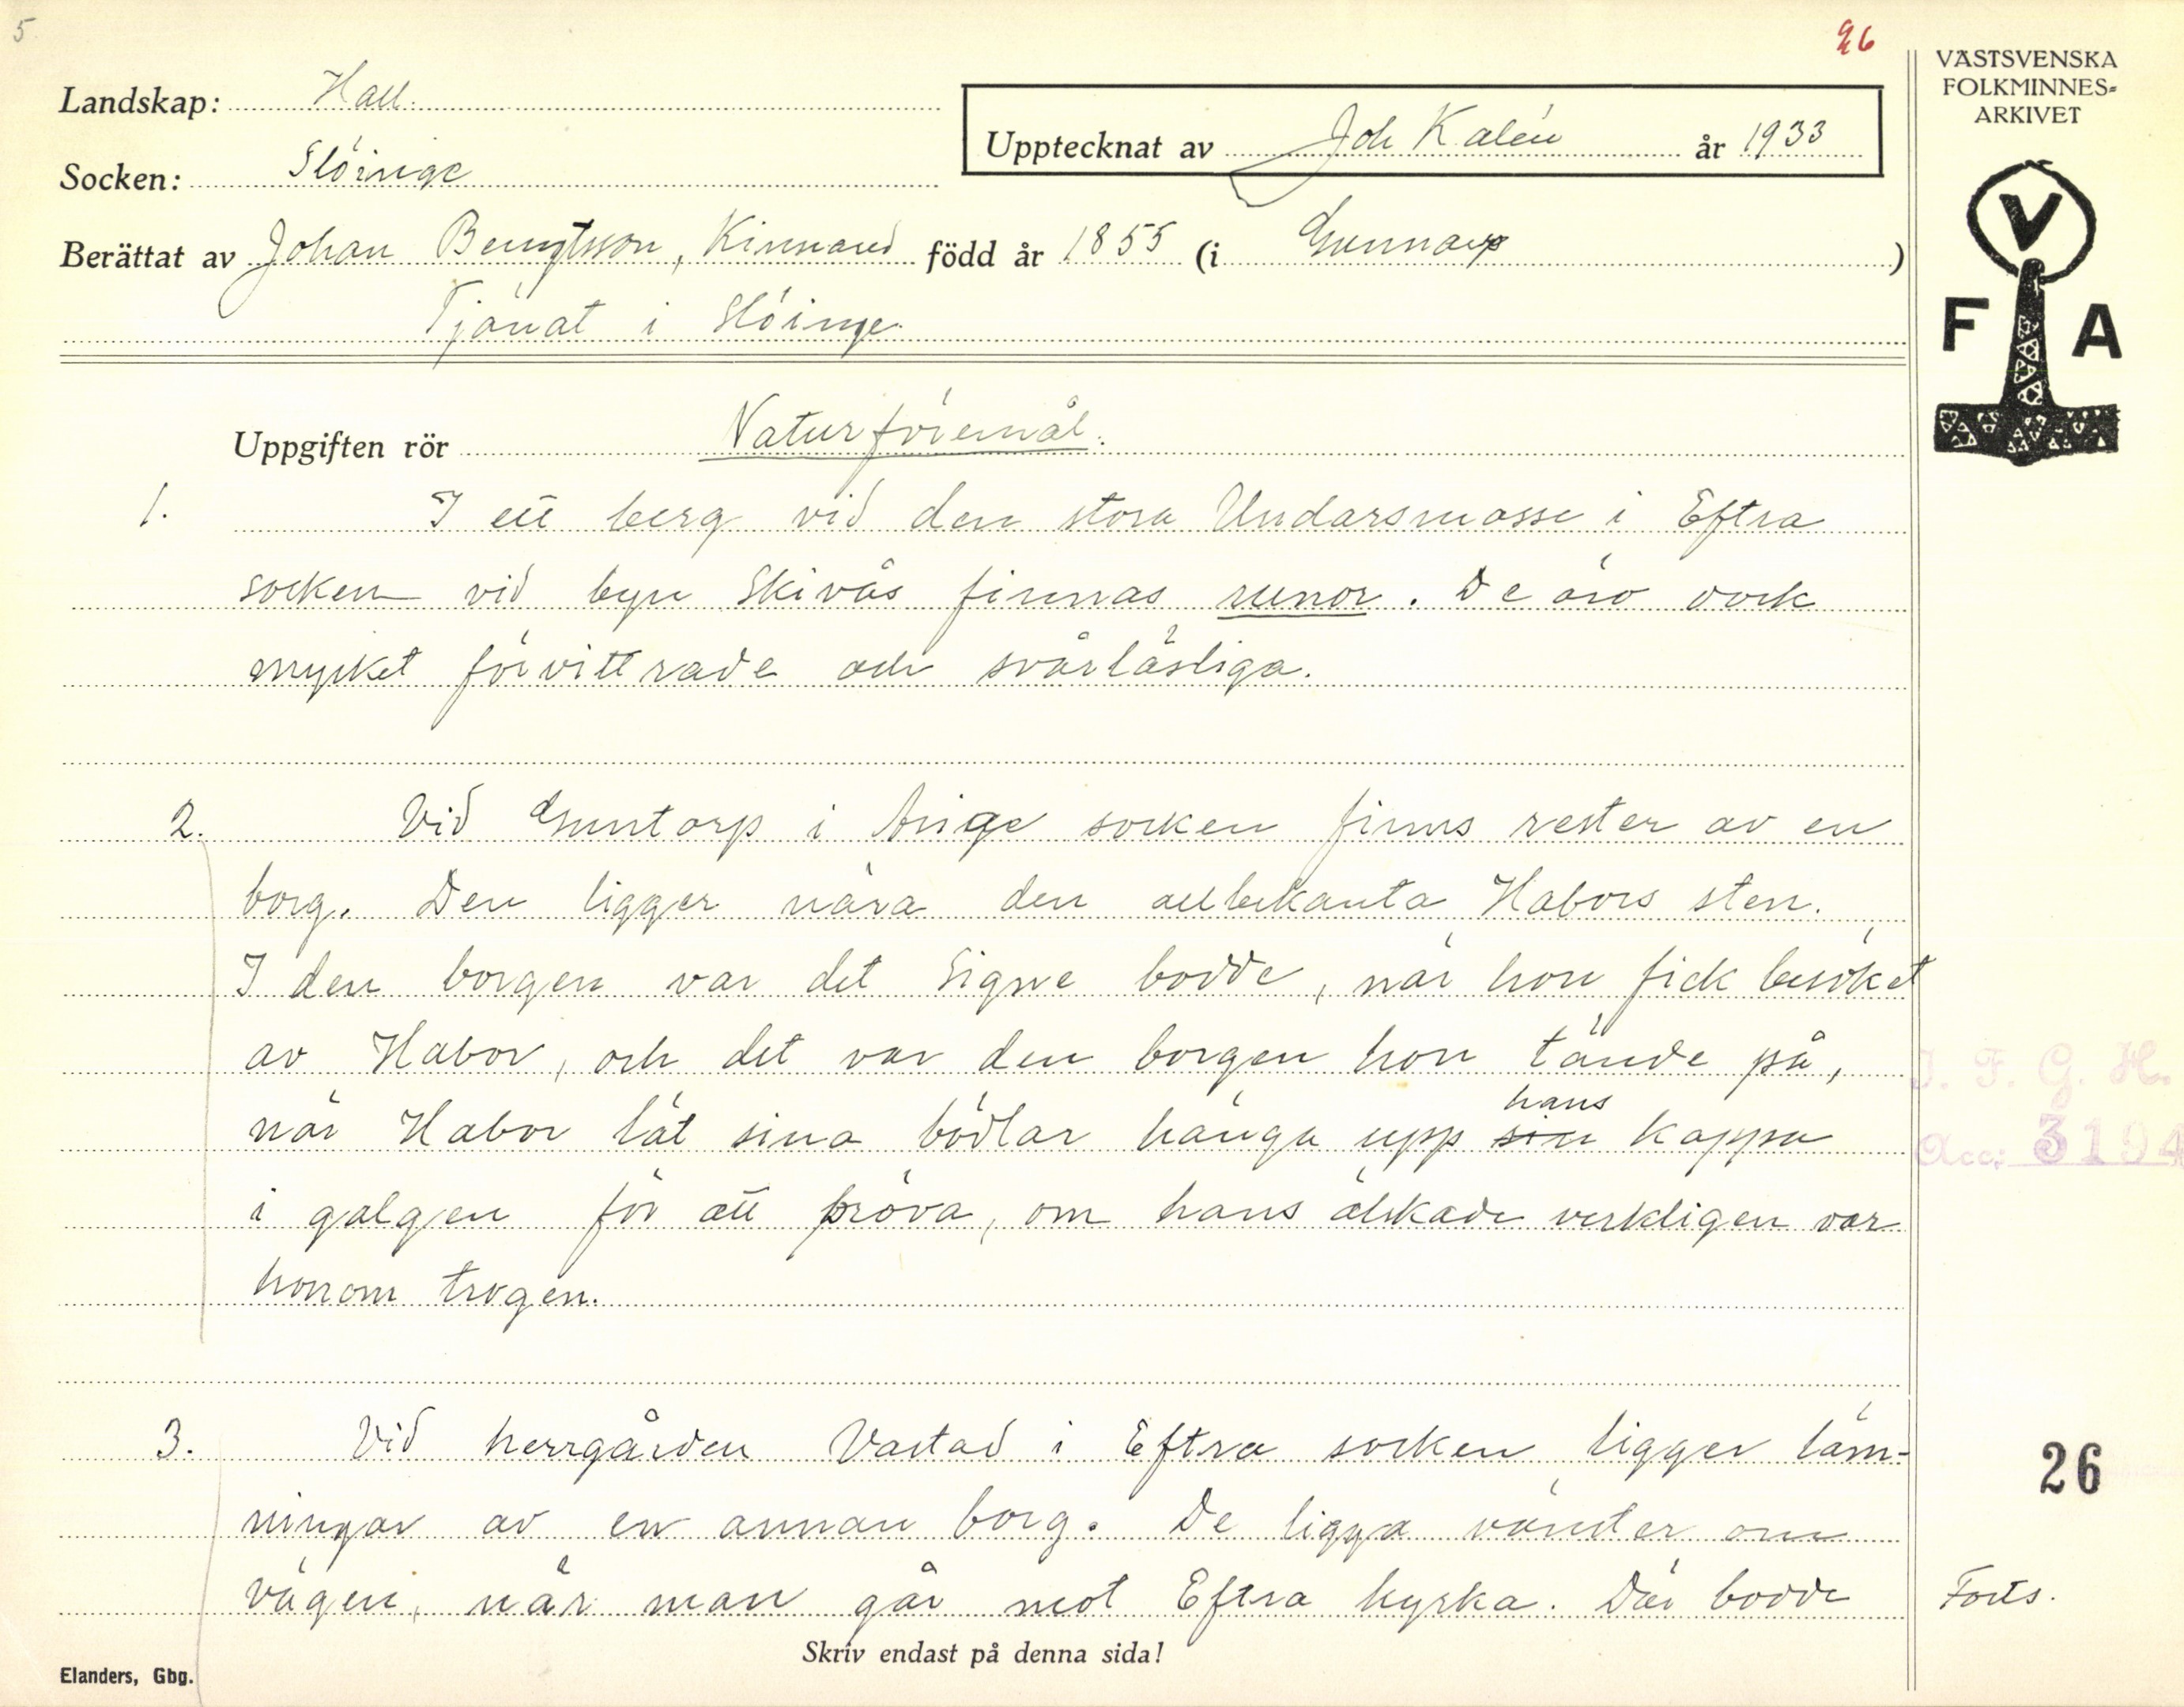 5.
26
VÄSTSVENSKA
FOLKMINNES-
ARKIVET
Landskap: Hall.
Upptecknat av Joh Kalén år 1933
Socken: Slöinge
Berättat av Johan Bengtsson, Kinnared född år 1855 (i Gunnarp)
Tjänat i Slöinge.
V
F A
Uppgiften rör Naturföremål.
1. I ett berg vid den stora Undarsmosse i Eftra
socken vid byn Skivås finnas runor. De äro dock
mycket förvittrade och svårläsliga.
2. Vid Guntorp i Årige socken finns rester av en
borg. Den ligger nära den allbekanta Habors sten.
I den borgen var det Signe bodde, när hon fick besöket
av Habor, och det var den borgen hon tände på,
när Habor lät sina bödlar hänga upp sin hans kappa
i galgen för att pröva, om hans älskade verkligen var
honom trogen.
J. F. G. H.
Acc: 3194
3. Vid herrgården Vastad i Eftra socken ligger läm-
ningar av en annan borg. De ligga vänster om
vägen, när man går mot Eftra kyrka. Där bodde
26
Forts.
Skriv endast på denna sida!
Elanders, Gbg.